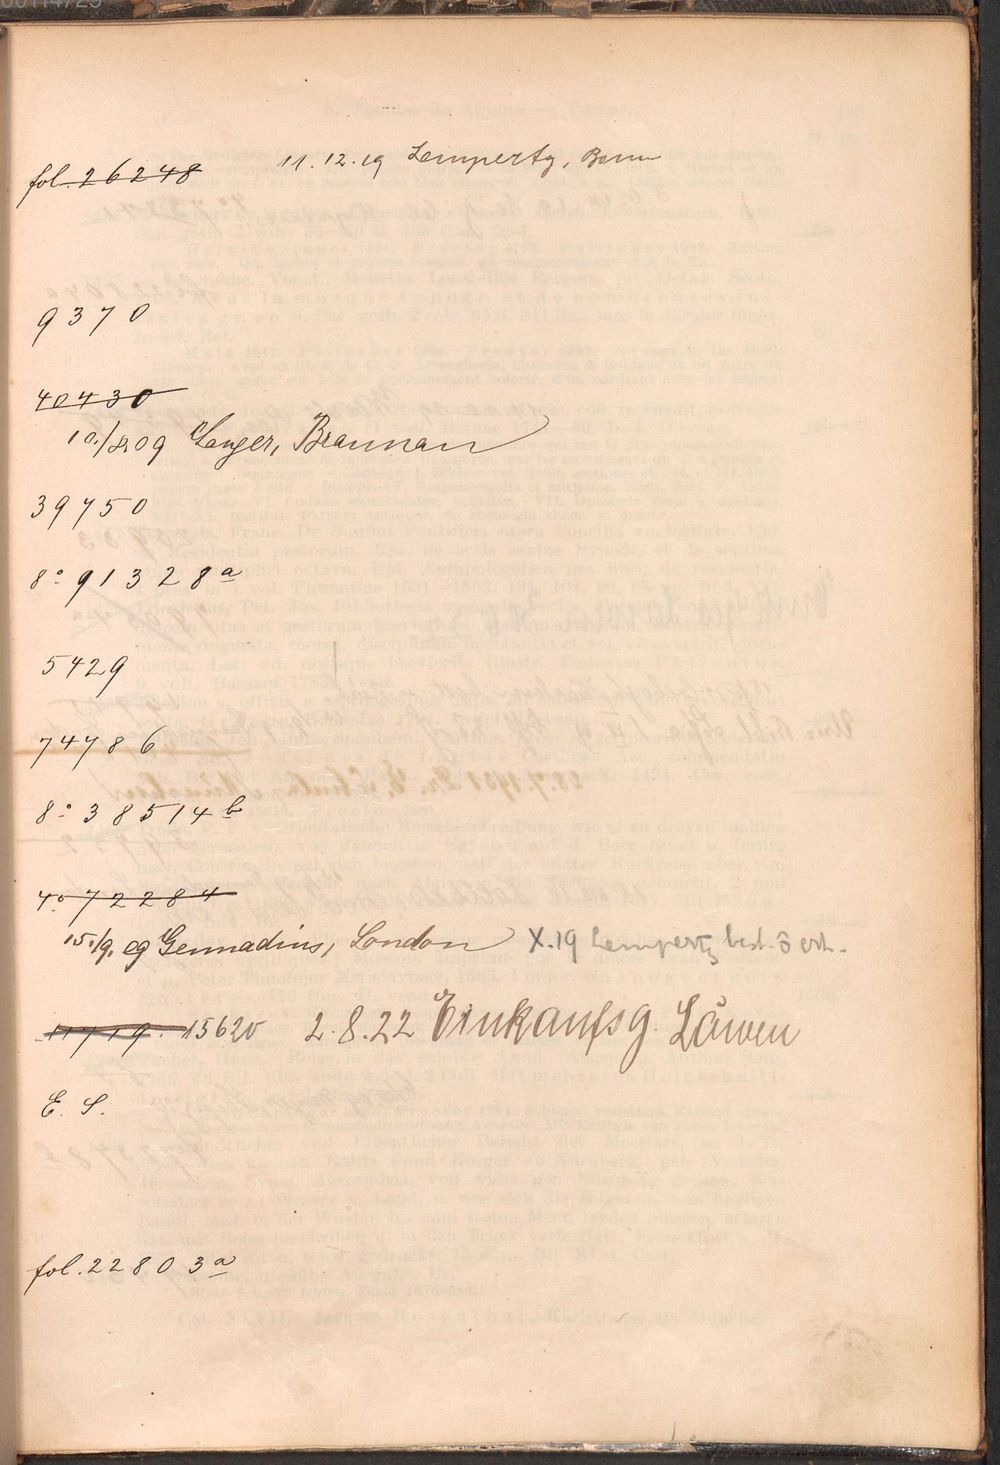 fol. 26248 11.12.19 Lempertz, Bonn
9370
40430
10./8.09 Langer, Braunau
39750
8° 91328a
5429
74786
8° 38514b
4° 72284
15./9. 09 Gennadius, London X.19 Lempertz best.
15620 2.8.22 Einkaufsg. Löwen
E. S.
fol. 22803a